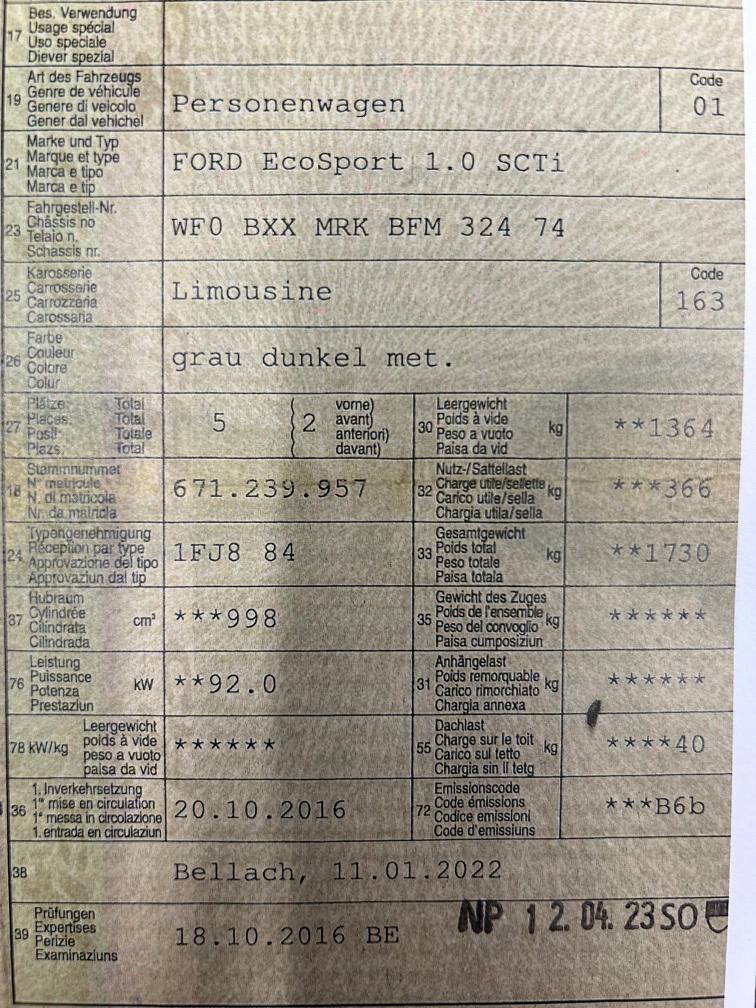 17 Bes. Verwendung
Usage spécial
Uso speciale
Diever spezial
19 Art des Fahrzeugs
Genre de véhicule
Genere di veicolo
Gener dal vehichel
Personenwagen
Code
01
21 Marke und Typ
Marque et type
Marca e tipo
Marca e tip
FORD EcoSport 1.0 SCTi
23 Fahrgestell-Nr.
Châssis no
Telaio n.
Schassis nr.
WF0 BXX MRK BFM 324 74
25 Karosserie
Carrosserie
Carrozzeria
Carossaria
Limousine
Code
163
26 Farbe
Couleur
Colore
Colur
grau dunkel met.
27 Plätze: Total
Places: Total
Posti: Totale
Plazs: Total
5 ( 2 vorne)
avant)
anteriori)
davant)
30 Leergewicht
Poids à vide
Peso a vuoto
Paisa da vid
kg **1364
18 Stammnummer
N° matricule
N. di matricola
Nr. da matricla
671.239.957
32 Nutz-/Sattellast
Charge utile/sellette
Carico utile/sella
Chargia utila/sella
kg ***366
24 Typengenehmigung
Réception par type
Approvazione del tipo
Approvaziun dal tip
1FJ8 84
33 Gesamtgewicht
Poids total
Peso totale
Paisa totala
kg **1730
37 Hubraum
Cylindrée
Cilindrata
Cilindrada
cm³ ***998
35 Gewicht des Zuges
Poids de l'ensemble
Peso del convoglio
Paisa cumposiziun
kg ******
76 Leistung
Puissance
Potenza
Prestaziun
kW **92.0
31 Anhängelast
Poids remorquable
Carico rimorchiato
Chargia annexa
kg ******
78 kW/kg Leergewicht
poids à vide
peso a vuoto
paisa da vid
******
55 Dachlast
Charge sur le toit
Carico sul tetto
Chargia sin il tetg
kg ****40
36 1. Inverkehrsetzung
1re mise en circulation
1a messa in circolazione
1. entrada en circulaziun
20.10.2016
72 Emissionscode
Code émissions
Codice emissioni
Code d'emissiuns
***B6b
38 Bellach, 11.01.2022
39 Prüfungen
Expertises
Perizie
Examinaziuns
18.10.2016 BE
NP 12.04.23 SO